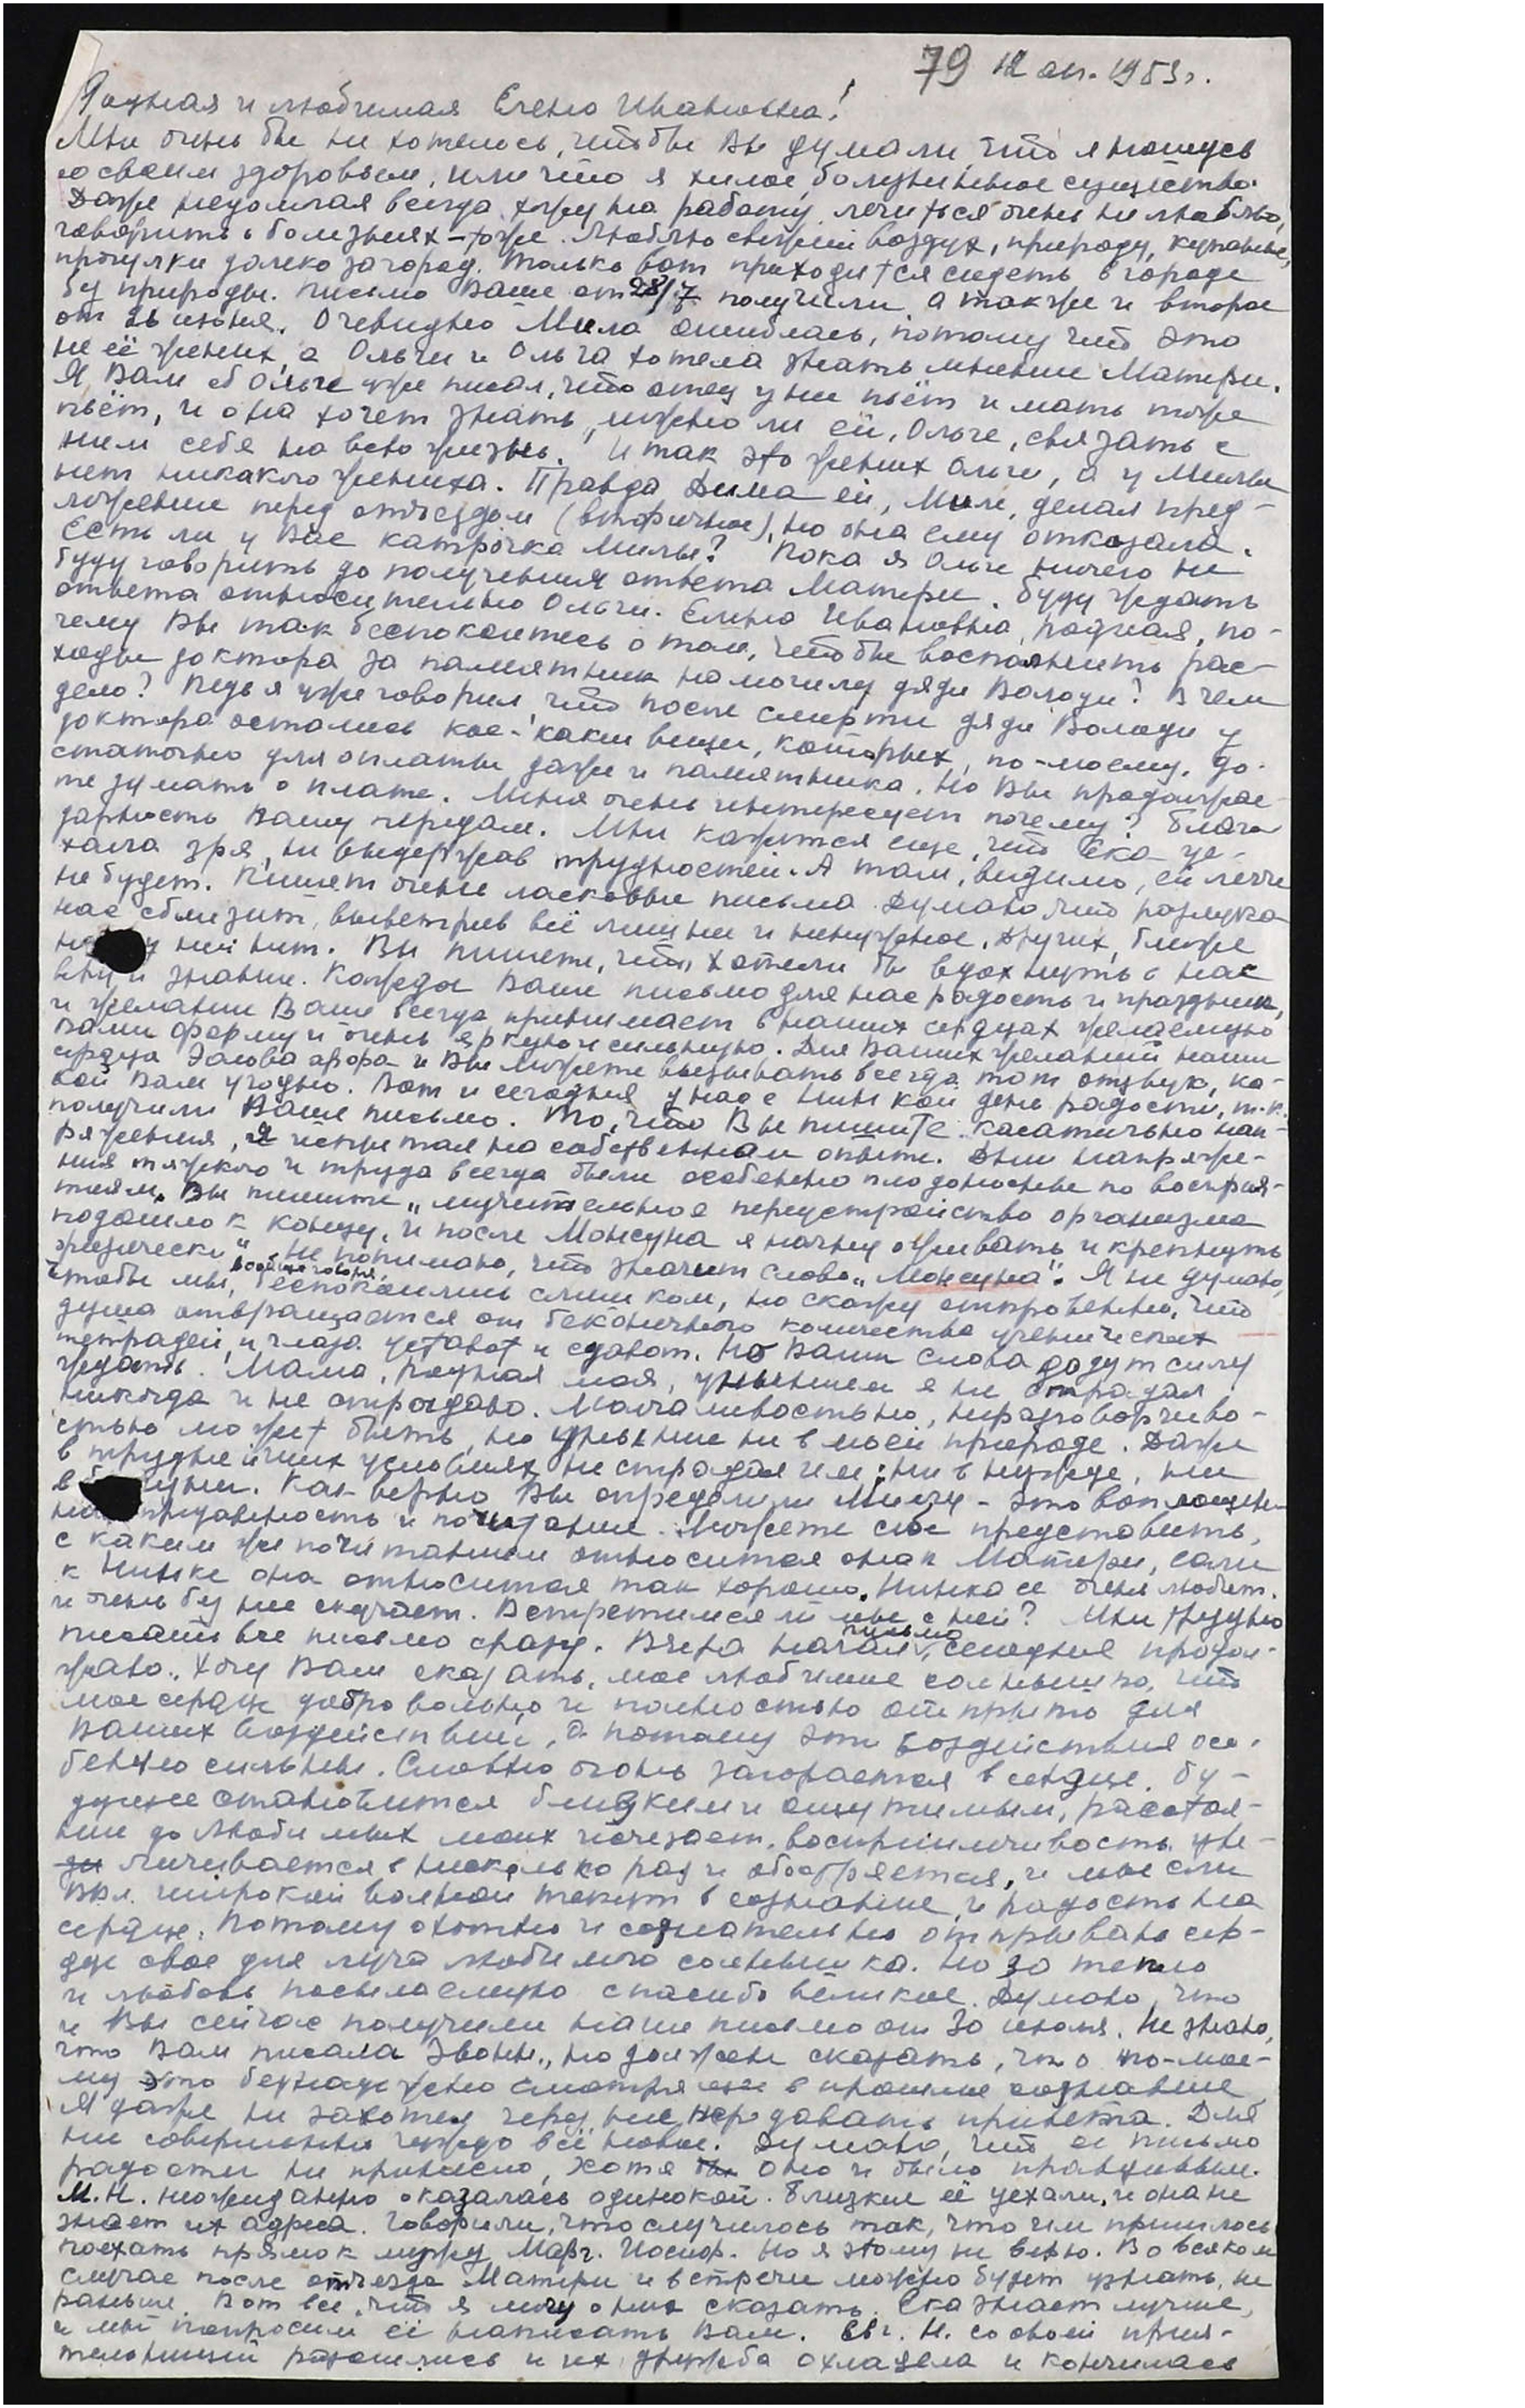 79 12 авг. 1953 г.
Родная и любимая Елена Ивановна!
Мне очень бы не хотелось, чтобы Вы думали, что я ношусь
со своим здоровьем, или что я хилое, болезненное существо.
Даже недомогая всегда хожу на работу, лечиться очень не люблю,
говорить о болезнях – тоже. Люблю свежий воздух, природу, купанье,
прогулки далеко загород. Только вот приходится сидеть в городе
без природы. Письмо Ваше от 28/7 получили, а также и второе
от июня. Очевидно Мила ошиблась, потому что это
не её жених, а Ольги и Ольга хотела знать мнение Матери.
Я Вам об Ольге уже писал, что отец у неё пьёт и мать тоже
пьёт, и она хочет знать, можно ли ей, Ольге, связать с
ним себя на всю жизнь. Итак это жених Ольги, а у Милы
нет никакого жениха. Правда Дима ей, Миле, делал пред-
ложение перед отъездом (вторичное), но она ему отказала.
Есть ли у Вас карточка Милы? Пока я Ольге ничего не
буду говорить до получения ответа Матери. Буду ждать
ответа относительно Ольги. Елена Ивановна, родная, по-
чему Вы так беспокоитесь о том, чтобы восполнить рас-
ходы доктора за памятник на могилу дяди Володи? В чем
дело? Ведь я уже говорил, что после смерти дяди Володи у
доктора остались кое-какие вещи, которых, по-моему, до-
статочно для оплаты даже и памятника. Но Вы продолжае-
те думать о плате. Меня очень интересует почему? Благо-
дарность Вашу передам. Мне кажется еще, что Ека уе-
хала зря, не выдержав трудностей. А там, видимо, ей легче
не будет. Пишет очень ласковые письма. Думаю что разлука
нас сблизит, выветрив всё лишнее и ненужное. Других, ближе
у неё нет. Вы пишете, что хотели бы вдохнуть в нас
знание. Каждое Ваше письмо для нас радость и праздник,
и желание Ваше всегда принимает в наших сердцах желаемую
Вами форму и очень яркую и сильную. Для Ваших желаний наши
сердца Эолова арфа и Вы можете вызывать всегда тот отзвук, ка-
кой Вам угодно. Вот и сегодня у нас с Нинкой день радости, т.к.
получили Ваше письмо. То, что Вы пишите касательно нап-
ряжения, я испытал на собственном опыте. Дни напряже-
ния тяжкого и труда всегда были особенно плодоносны по восприя-
тиям. Вы пишите „мучительное переустройство организма
подошло к концу, и после Монсуна я начну оживать и крепнуть
физически“. Не понимаю, что значит слово „Монсуна“. Я не думаю,
чтобы мы, вообще говоря, беспокоились слишком, но скажу откровенно, что
душа отвращается от бесконечного количества ученических
тетрадей, и глаза устают и сдают. Но Ваши слова дадут силу
ждать. Мама, родная моя, унынием я не страдал
никогда и не страдаю. Молчаливостью, неразговорчиво-
стью может быть, но уныние не в моей природе. Даже
в труднейших условиях не страдал им: ни в нужде, ни
в . Как верно Вы определили – это воплощен-
преданность и почитание. Можете себе представить,
с каким же почитанием относится она к Матери, если
к Нинке она относится так хорошо. Нинка ее очень любит.
и очень без нее скучает. Встретимся ли мы с ней? Мне трудно
писать все письмо сразу. Вчера начал письмо, сегодня продол-
жаю. Хочу Вам сказать, мое любимое солнышко, что
мое сердце добровольно и полностью открыто для
Ваших воздействий, а потому эти воздействия осо-
бенно сильны. Словно огонь загорается в сердце. Бу-
дущее становится близким и ощутимым, расстоя-
ние до любимых моих исчезает, восприимчивость уве-
личивается в несколько раз и обостряется, и мысли
Вл. широкой волной текут в сознание, и радость на
сердце. Потому охотно и сознательно открываю сер-
дце свое для луча любимого солнышка. Но за тепло
и любовь посылаемую спасибо великое. Думаю, что
и Вы сейчас получили наше письмо от 30 июня. Не знаю,
что Вам писала Звонн., но должен сказать, что по-мое-
му это безнадежно смотрящее в прошлое сознание
Я даже не захотел через нее передавать привета. Для
нее совершенно чуждо всё новое. Думаю, что ее письмо
радости не принесло, хотя оно и было правдивым.
М.Н. неожиданно оказалась одинокой. Близкие её уехали, и она не
знает их адреса. Говорили, что случилось так, что им пришлось
поехать прямо к мужу Марг. Иосиф. Но я этому не верю. Во всяком
случае после отъезда Матери и встречи можно будет узнать, не
раньше. Вот все, что я могу о них сказать. Ека знает лучше,
и мы попросим её написать Вам. Евг. Н. со своей прия-
тельницей разошлись и их дружба охладела и кончилась